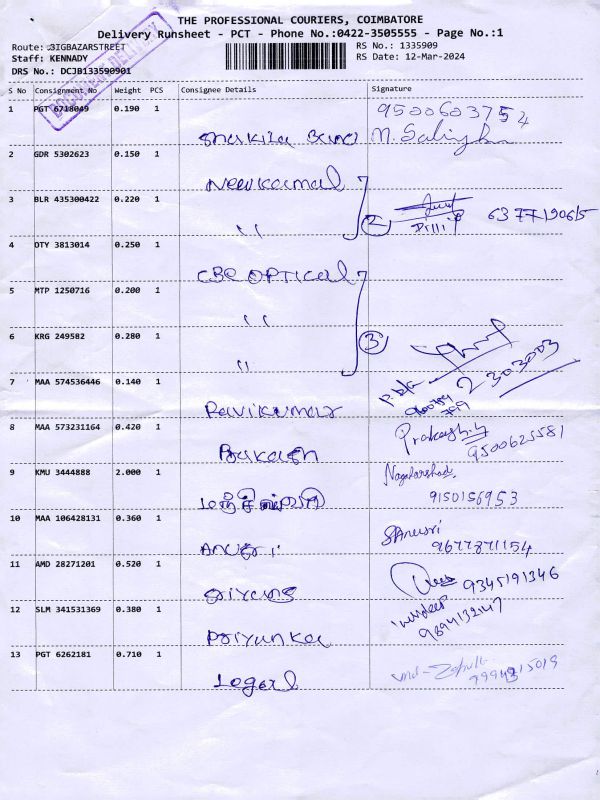 THE PROFESSIONAL COURIERS, COIMBATORE
Delivery Runsheet - PCT - Phone No.:0422-3505555 - Page No.:1
Route: BIGBAZARSTREET
RS No.: 1335909
Staff: KENNADY
RS Date: 12-Mar-2024
DRS No.: DCJB133590901
S No Consignment No Weight PCS Consignee Details Signature
1 PGT 6718049 0.190 1
9500603754
Shakila Banu
2 GDR 5302623 0.150 1
Newkamal
3 BLR 435300422 0.220 1
" 2 Dilli 6377190615
4 OTY 3813014 0.250 1
CBE OPTICAL
5 MTP 1250716 0.200 1
"
6 KRG 249582 0.280 1
" 3
2303003
7 MAA 574536446 0.140 1
Ravikumar
8 MAA 573231164 0.420 1
Prakash
9500625581
9 KMU 3444888 2.000 1
9150156953
10 MAA 106428131 0.360 1
9677871154
11 AMD 28271201 0.520 1
9345191346
12 SLM 341531369 0.380 1
9894132147
Priyanka
13 PGT 6262181 0.710 1